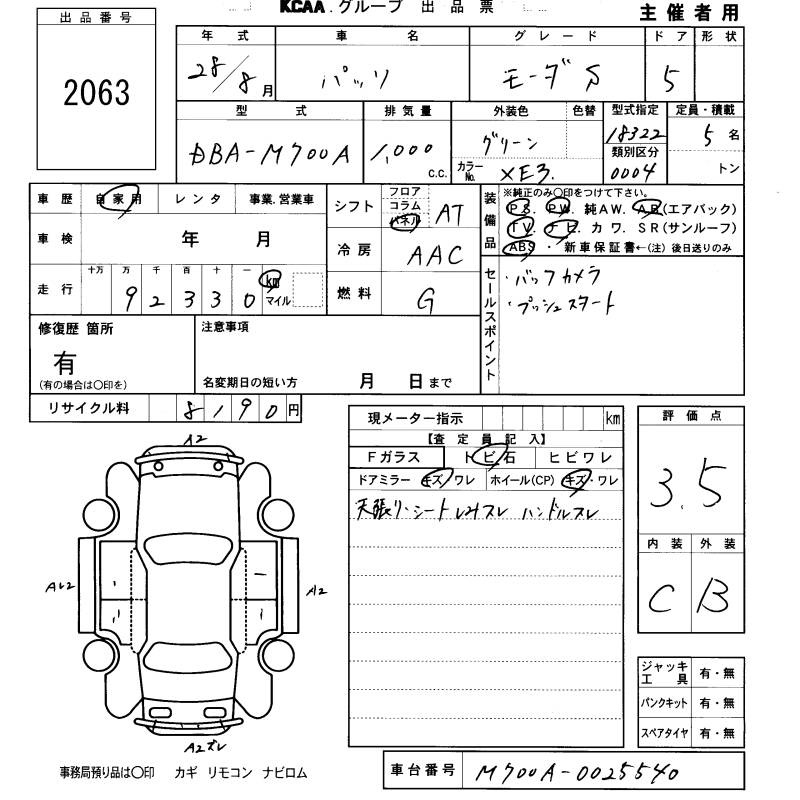 KCAA.グループ 出品票 主催者用
出品番号
2063
年式 車名 グレード ドア 形状
28/8月 パッソ モーダ S 5
型式 排気量 外装色 色替 型式指定 定員・積載
DBA-M700A 1,000 c.c. グリーン 18322 5名
カラーNo. XE3. 類別区分 0004 トン
車歴 自家用 レンタ 事業.営業車
シフト フロア コラム パネル AT
装備品 ※純正のみ〇印をつけて下さい。
PS. PW. 純AW. AB(エアバック)
TV. ナビ. カワ. SR(サンルーフ)
ABS・新車保証書←(注)後日送りのみ
車検 年 月
冷房 AAC
走行 十万 万 千 百 十 一 km マイル
9 2 3 3 0
燃料 G
セールスポイント
・バックカメラ
・プッシュスタート
修復歴 箇所
有
(有の場合は〇印を)
注意事項
名変期日の短い方 月 日まで
リサイクル料 8190円
現メーター指示 km
【査定員記入】
Fガラス トビ石 ヒビワレ
ドアミラー キズ/ワレ ホイール(CP) キズ・ワレ
天張り・シート シミスレ ハンドルスレ
評価点
3.5
内装 外装
C B
A2
A2
A2ズレ
ジャッキ工具 有・無
パンクキット 有・無
スペアタイヤ 有・無
事務局預り品は〇印 カギ リモコン ナビロム
車台番号 M700A-0025540